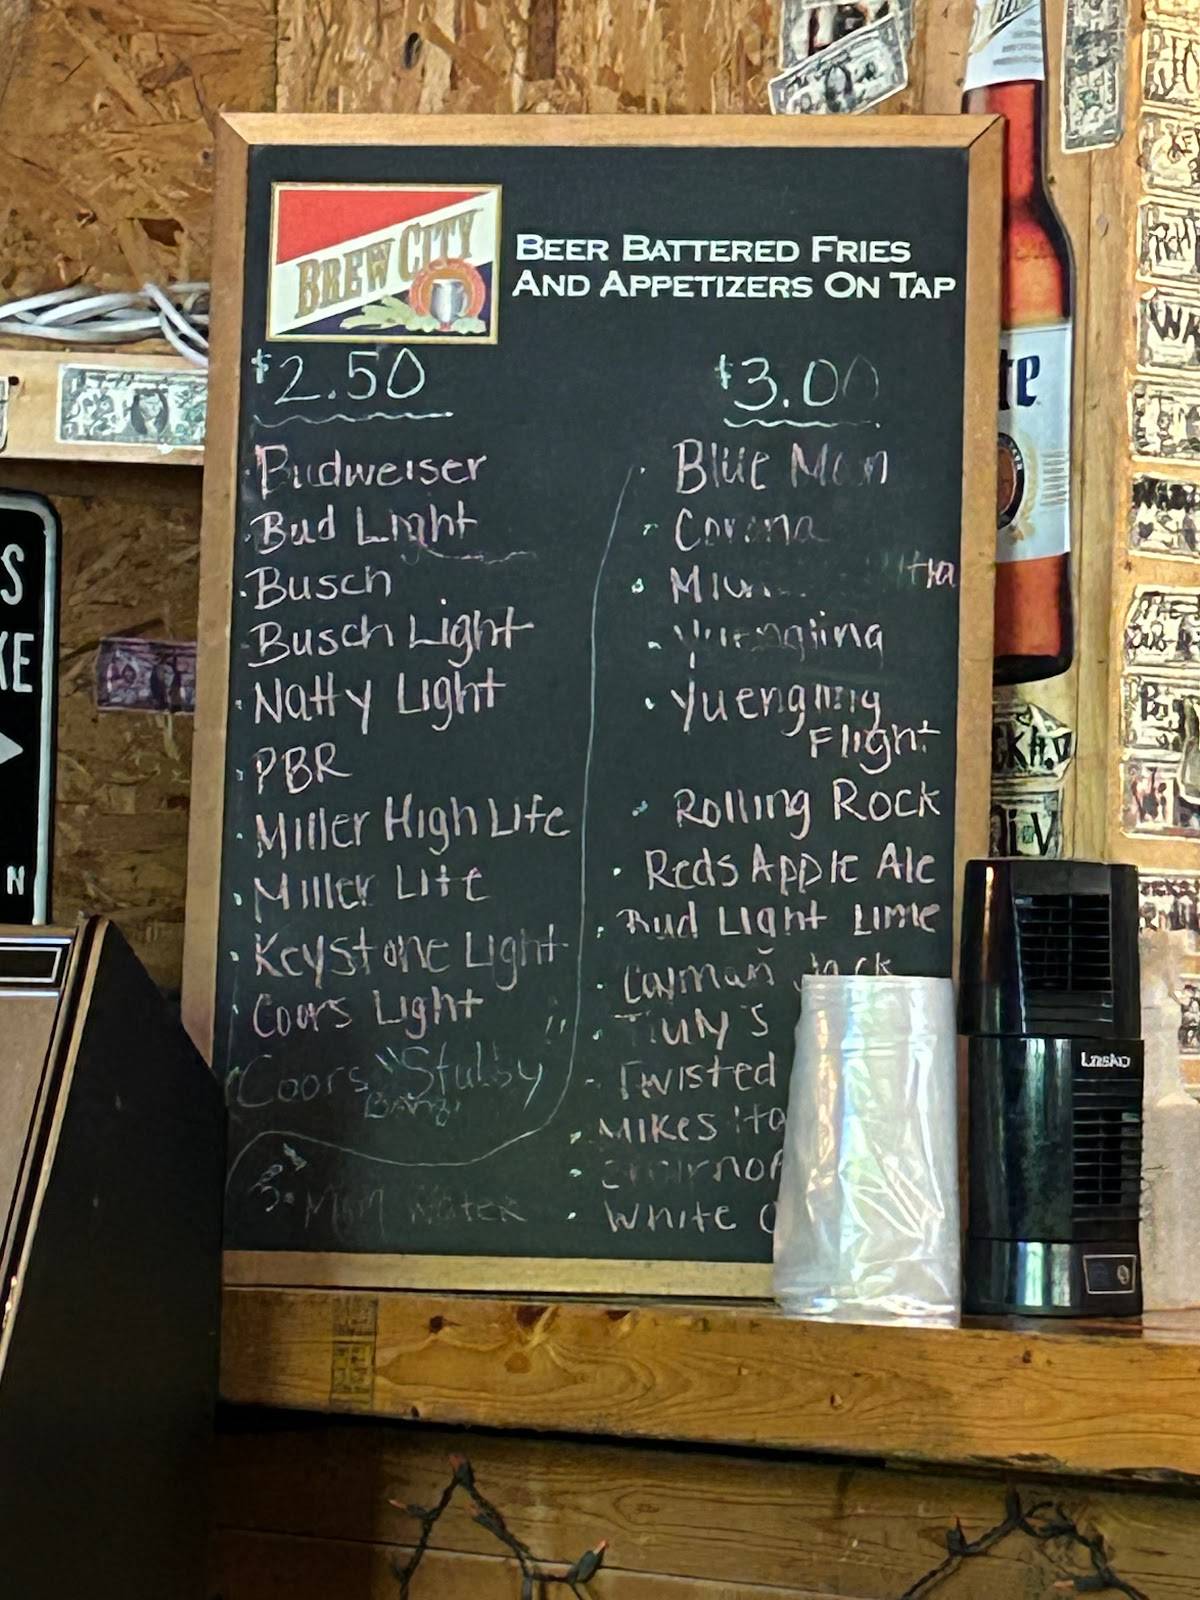 BREW CITY
BEER BATTERED FRIES
AND APPETIZERS ON TAP
$2.50
Budweiser
Bud Light
Busch
Busch Light
Natty Light
PBR
Miller High Life
Miller Lite
Keystone Light
Coors Light
Coors "Stubby"
$3.00
Blue Moon
Corona
Yuengling
Yuengling
Flight
Rolling Rock
Reds Apple Ale
Bud Light Lime
Cayman Jack
Truly's
Twisted
Mikes
White
Water
Lasko